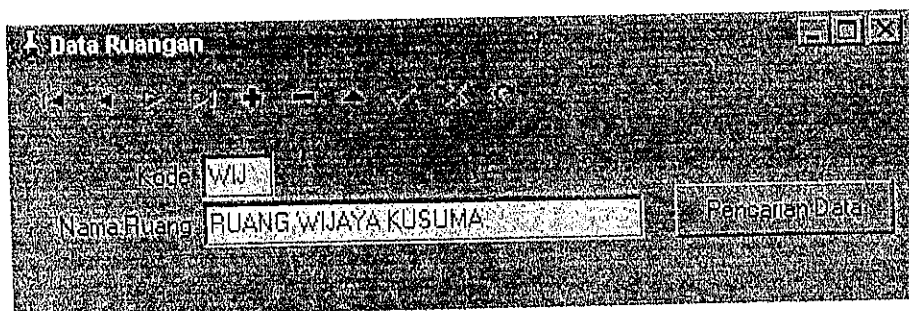 Data Ruangan
Kode WIJ
Nama Ruang RUANG WIJAYA KUSUMA
Pencarian Data